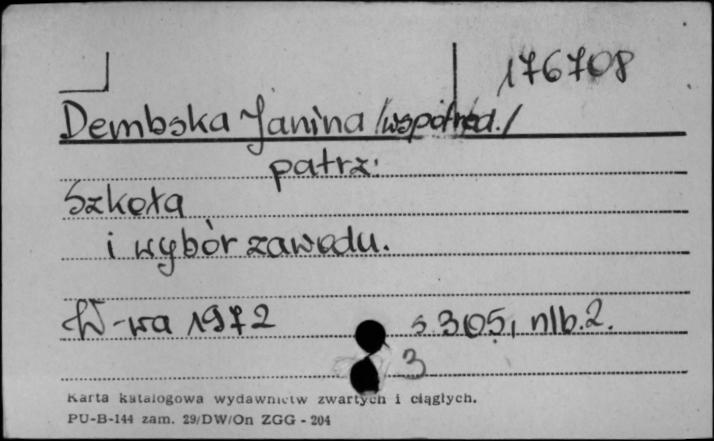 176708
Dembska Janina /współred./
patrz:
Szkoła
i wybór zawodu.
W-wa 1972 s. 305, nlb. 2.
3
Karta katalogowa wydawnictw zwartych i ciągłych.
PU-B-144 zam. 29/DW/On ZGG - 204